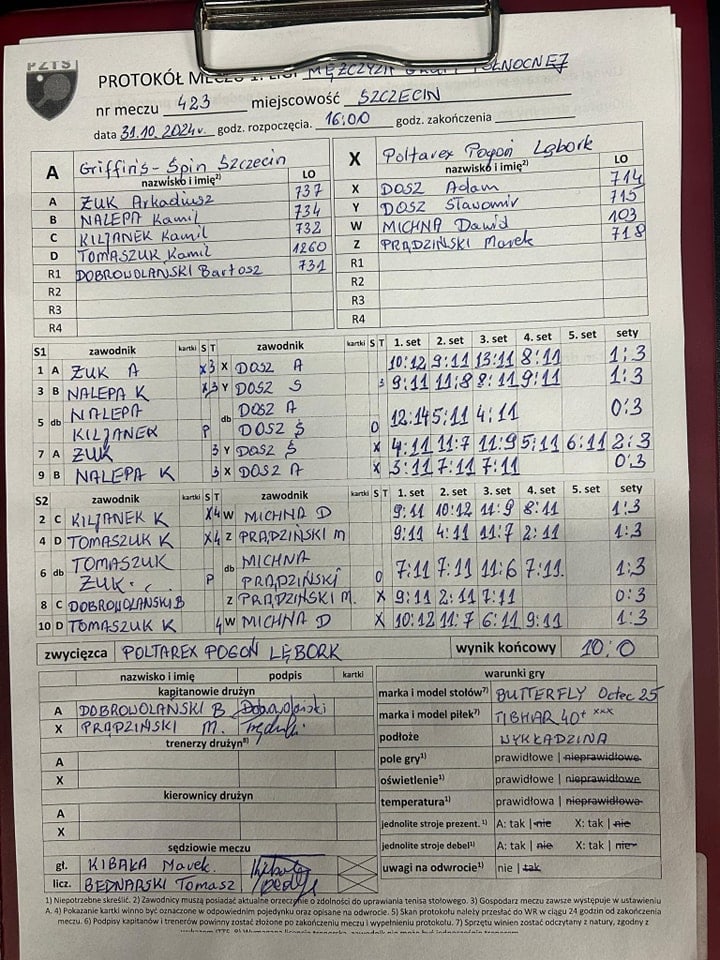 PZTS
PROTOKÓŁ MECZU 1. LIGI MĘŻCZYZN GRUPY PÓŁNOCNEJ
nr meczu 423 miejscowość SZCZECIN
data 31.10.2024r. godz. rozpoczęcia. 16:00 godz. zakończenia
A Griffin's-Spin Szczecin X Poltarex Pogoń Lębork
nazwisko i imię2) LO nazwisko i imię2) LO
A ŻUK Arkadiusz 737 X DOSZ Adam 714
B NALEPA Kamil 734 Y DOSZ Sławomir 715
C KILJANEK Kamil 732 W MICHNA Dawid 103
D TOMASZUK Kamil 1260 Z PRĄDZIŃSKI Marek 718
R1 DOBROWOLAŃSKI Bartosz 731 R1
R2 R2
R3 R3
R4 R4
S1 zawodnik kartki S T zawodnik kartki S T 1. set 2. set 3. set 4. set 5. set sety
1 A ŻUK A X 3 X DOSZ A 10:12 9:11 13:11 8:11 1:3
3 B NALEPA K X 3 Y DOSZ S 3 9:11 11:8 8:11 9:11 1:3
5 db NALEPA KILJANEK P db DOSZ A DOSZ S O 12:14 5:11 4:11 0:3
7 A ŻUK 3 Y DOSZ S X 4:11 11:7 11:9 5:11 6:11 2:3
9 B NALEPA K 3 X DOSZ A X 3:11 7:11 7:11 0:3
S2 zawodnik kartki S T zawodnik kartki S T 1. set 2. set 3. set 4. set 5. set sety
2 C KILJANEK K X 4 W MICHNA D 9:11 10:12 11:9 8:11 1:3
4 D TOMASZUK K X 4 Z PRĄDZIŃSKI M 9:11 4:11 11:7 2:11 1:3
6 db TOMASZUK ŻUK P db MICHNA PRĄDZIŃSKI O 7:11 7:11 11:6 7:11. 1:3
8 C DOBROWOLANSKI B Z PRĄDZIŃSKI M. X 9:11 2:11 7:11 0:3
10 D TOMASZUK K 4 W MICHNA D X 10:12 11:7 6:11 9:11 1:3
zwycięzca POLTAREX POGOŃ LĘBORK wynik końcowy 10:0
nazwisko i imię podpis kartki warunki gry
kapitanowie drużyn marka i model stołów7) BUTTERFLY Octet 25
A DOBROWOLAŃSKI B Dobrowolański
X PRĄDZIŃSKI M. marka i model piłek7) TIBHAR 40+ xxx
trenerzy drużyn8) podłoże WYKŁADZINA
A pole gry1) prawidłowe | nieprawidłowe
X oświetlenie1) prawidłowe | nieprawidłowe
kierownicy drużyn temperatura1) prawidłowa | nieprawidłowa
A jednolite stroje prezent. 1) A: tak | nie X: tak | nie
X jednolite stroje debel1) A: tak | nie X: tak | nie
sędziowie meczu uwagi na odwrocie1) nie | tak
gł. KIBAŁA Marek.
licz. BEDNARSKI Tomasz
1) Niepotrzebne skreślić. 2) Zawodnicy muszą posiadać aktualne orzeczenie o zdolności do uprawiania tenisa stołowego. 3) Gospodarz meczu zawsze występuje w ustawieniu
A. 4) Pokazanie kartki winno być oznaczone w odpowiednim pojedynku oraz opisane na odwrocie. 5) Skan protokołu należy przesłać do WR w ciągu 24 godzin od zakończenia
meczu. 6) Podpisy kapitanów i trenerów powinny zostać złożone po zakończeniu meczu i wypełnieniu protokołu. 7) Sprzętu winien zostać odczytany z natury, zgodny z